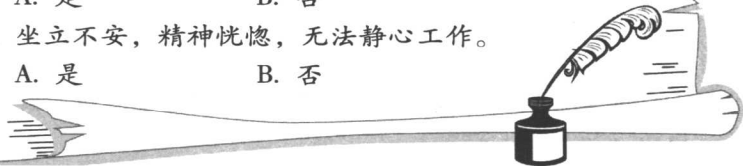 A. 是 B. 否
坐立不安，精神恍惚，无法静心工作。
A. 是 B. 否